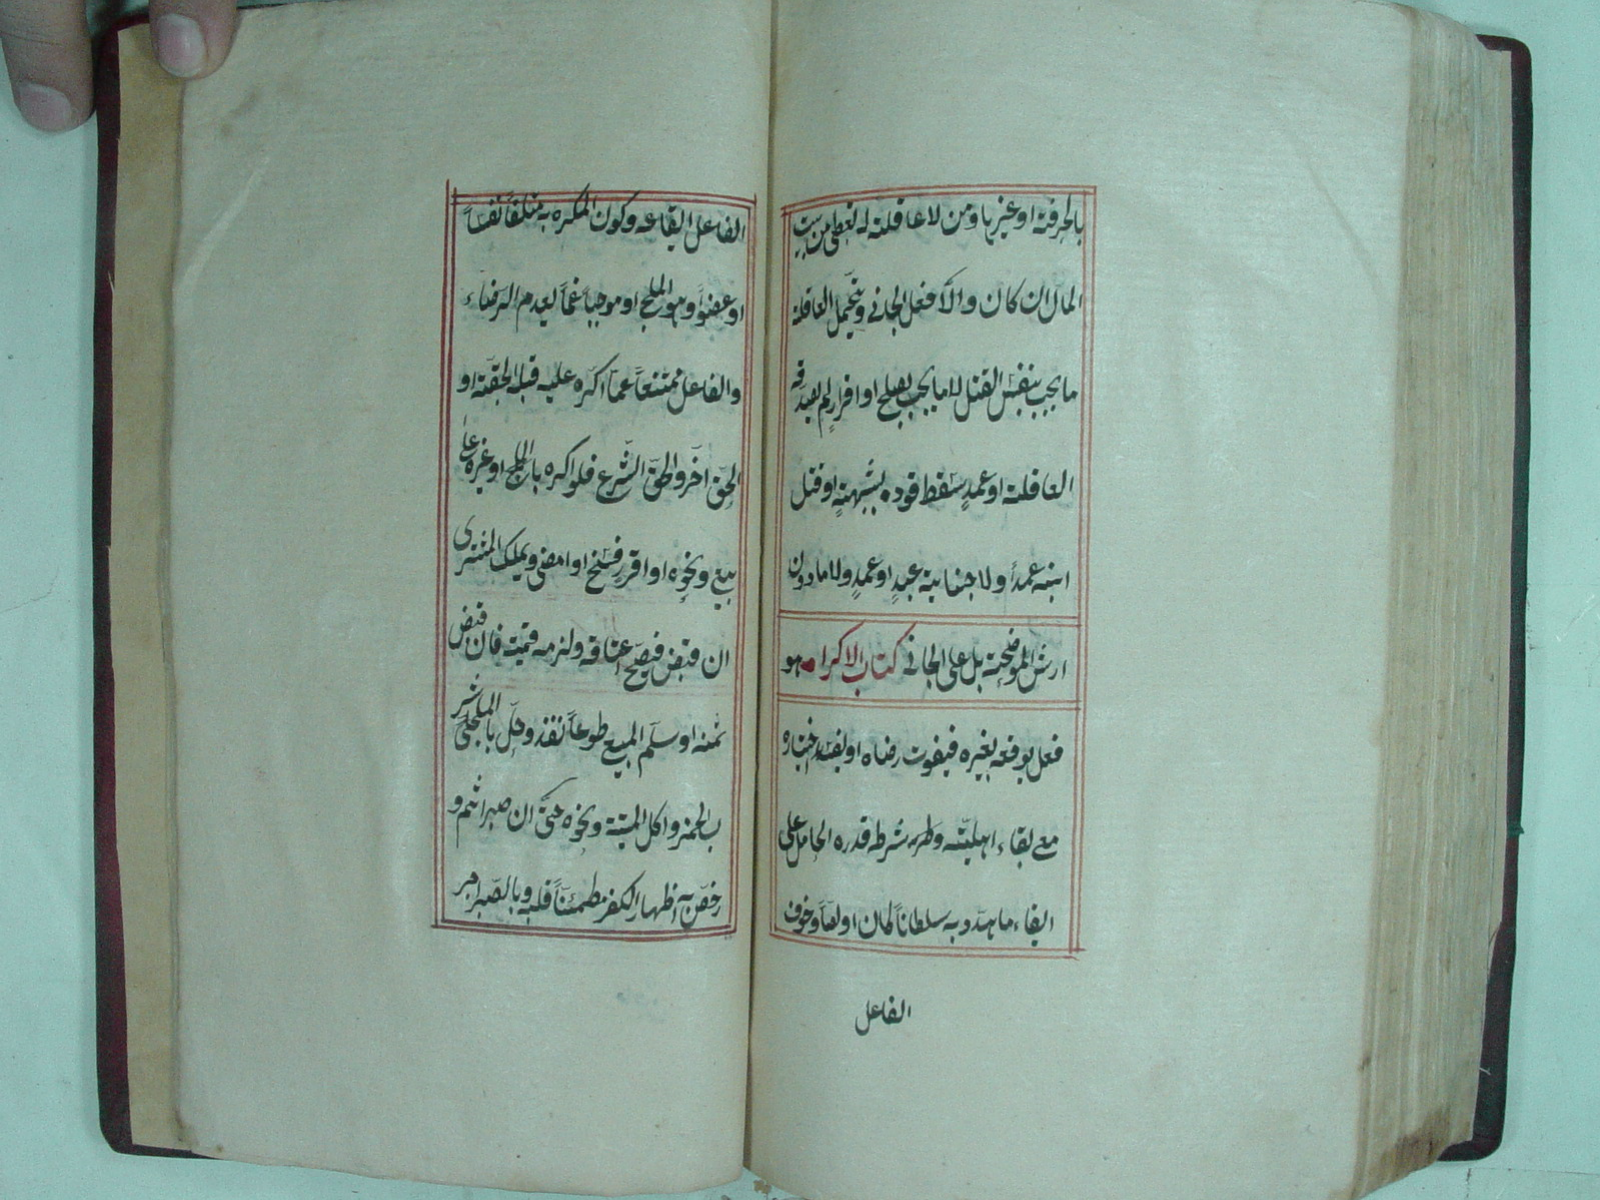 بالحرفة او غيرها ومن لا عاقلة له تعطى من بيت
المال ان كان والا فعل الجانى ويتحمل العاقلة
ما يجب بنفس القتل لا ما يجب بصلح او اقرار لم يصدقه
العاقلة او عمدٍ سقط قوده بشبهةٍ او قتل
ابنه عمداً ولا جناية عبدٍ او عمدٍ ولا ما دون
ارش الموضحة بل على الجانى كتاب الاكراه هو
فعل يوقعه بغيره فيفوت رضاه او يفسد اختياره
مع بقاء اهليته وشرطه قدرة الحامل على
ايقاء ما هدد به سلطاناً كان او لصاً وخوف
الفاعل
الفاعل ايقاعه وكون المكره به متلفاً نفساً
او عضواً وهو الملجى او موجباً غماً يعدم الرضاء
والفاعل ممتنعاً عما اكره عليه قبله لحقه او
لحق آخر ولحق الشرع فلو اكره بالملجى او غيره على
بيع ونحوه او اقر فسخ او امضى ويملك المشترى
ان قبض فيصح اعتاقه ولزمه قيمته فان قبض
ثمنه او سلم المبيع طوعاً نفذ وحل بالملجى
ب الخمر واكل الميتة ونحوه حتى ان صبر اثم و
رخص به اظهار الكفر مطمئناً قلبه وبالصبر اجر